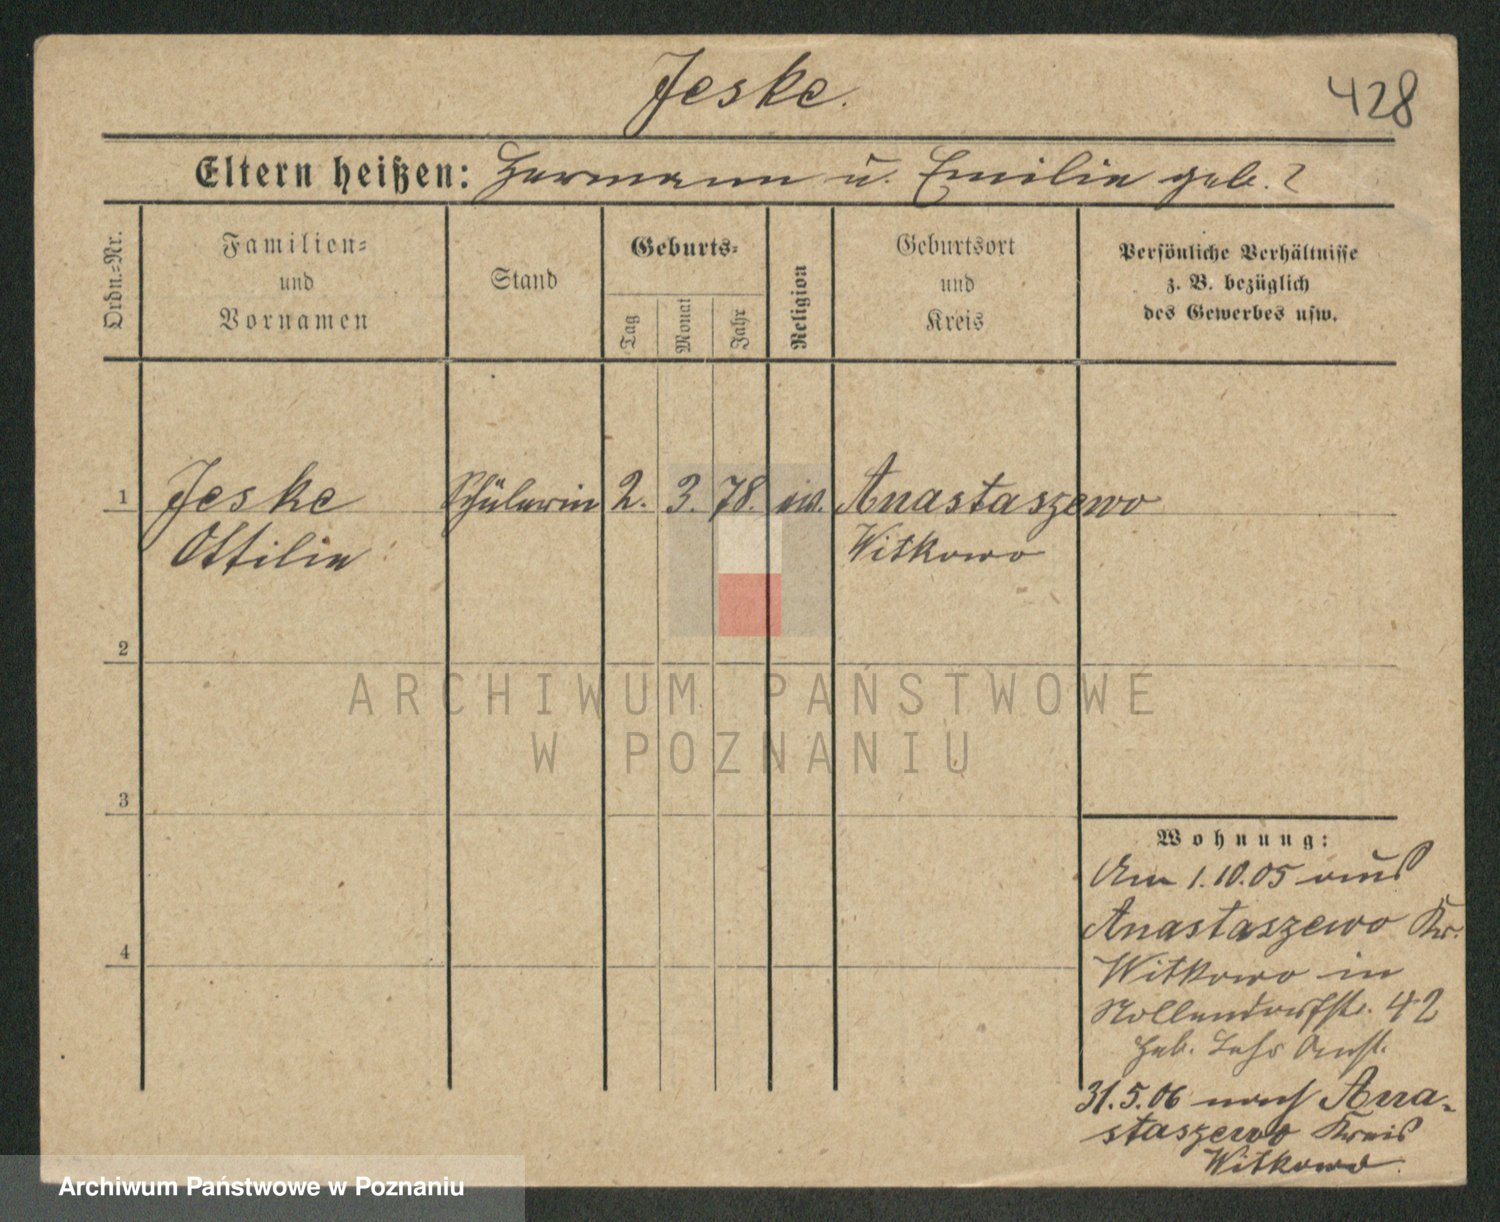 Jeske.
428
Eltern heißen: Hermann u. Emilie geb. ?
Ordn.=Nr.
Familien=
und
Vornamen
Stand
Geburts=
Tag
Monat
Jahr
Religion
Geburtsort
und
Kreis
Persönliche Verhältnisse
z. B. bezüglich
des Gewerbes usw.
1 Jeske Schülerin 2. 3. 78. ev. Anastaszewo
Ottilie Witkowo
2
3
4
Wohnung:
Am 1.10.05 aus
Anastaszewo Kr.
Witkowo in
Nollendorfstr. 42
Heb. Lehr Anst.
31.5.06 nach Ana-
staszewo Kreis
Witkowo.
ARCHIWUM PAŃSTWOWE
W POZNANIU
Archiwum Państwowe w Poznaniu